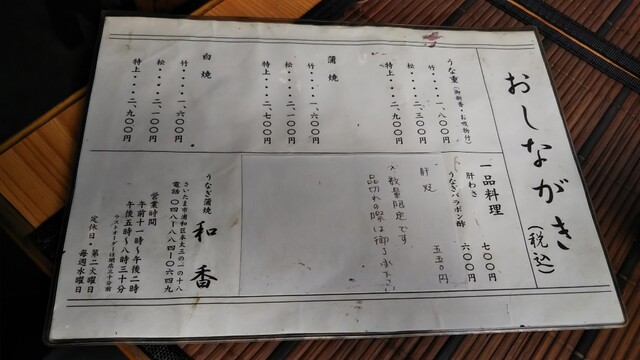 おしながき（税込）
うな重（御新香・お吸物付）
竹・・・・一、八〇〇円
松・・・・二、三〇〇円
特上・・・二、九〇〇円
蒲焼
竹・・・・一、六〇〇円
松・・・・二、一〇〇円
特上・・・二、七〇〇円
白焼
竹・・・・一、六〇〇円
松・・・・二、一〇〇円
特上・・・二、九〇〇円
一品料理
肝わさ 七〇〇円
うなぎバラポン酢 六〇〇円
肝焼 五五〇円
数量限定です
品切れの際は御了承下さい
うなぎ蒲焼 和香
さいたま市浦和区本太二の二の十八
電話 〇四八ー八八四ー〇六四九
営業時間
午前十一時〜午後二時
午後五時〜八時三十分
ラストオーダーは閉店三十分前
定休日・第二火曜日
毎週水曜日